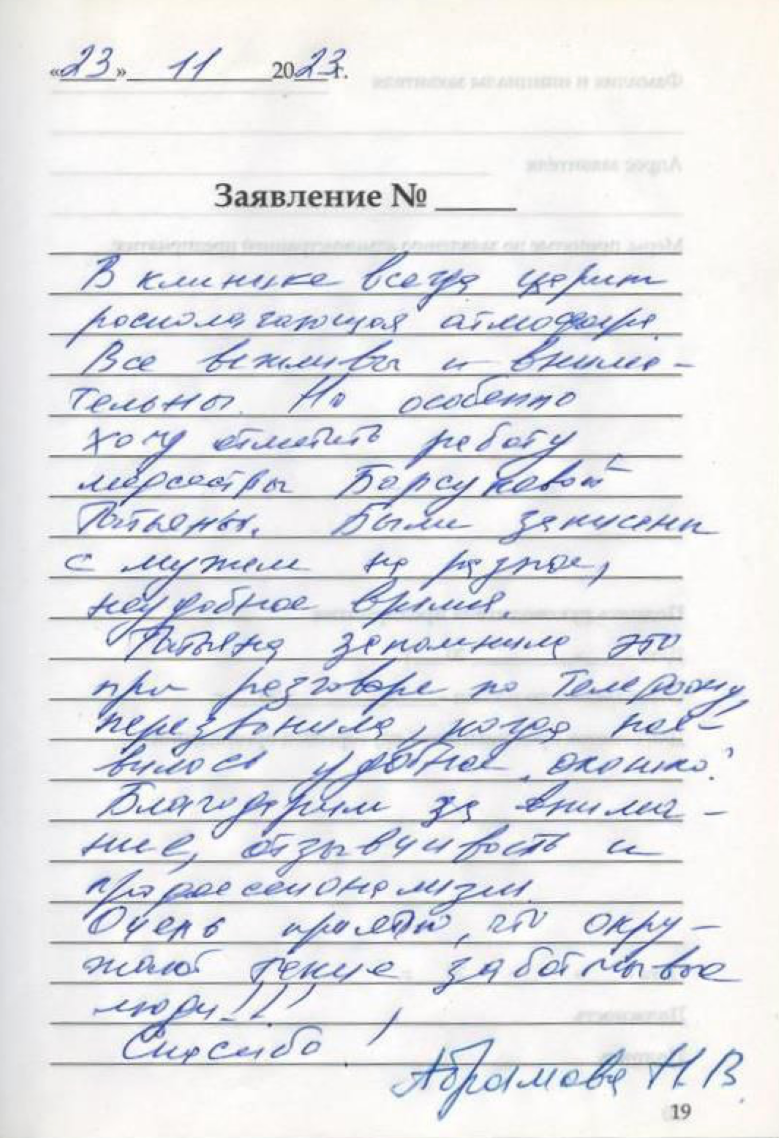 «23» 11 2023 г.
Заявление № ____
В клинике всегда царит
располагающая атмосфера.
Все вежливы и внима-
тельны. Но особенно
хочу отметить работу
медсестры Борсуковой
Татьяны. Были записаны
с мужем на разное,
неудобное время.
Татьяна запомнила это
при разговоре по телефону,
перезвонила, когда поя-
вилось удобное "окошко".
Благодарим за внима-
ние, отзывчивость и
профессионализм.
Очень приятно, что окру-
жают такие заботливые
люди!!!
Спасибо!
Абрамова Н.В.
19